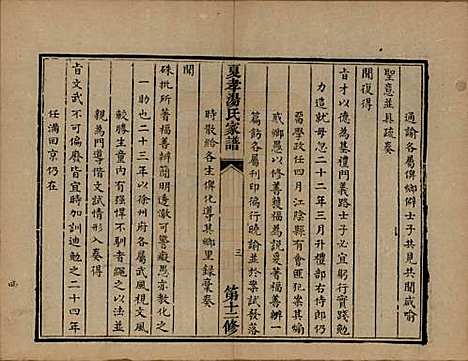 通諭各屬俾鄉僻士子共見共聞咸喻
聖意並具疏奏
聞復得
旨才以德為基禮門義路士子必宜躬行實踐勉
力造就毋忽二十二年三月升禮部右侍郎仍
留學政任四月江陰縣有會匪犯案其
或鄉愚以修善獲福為說爰著福善辨一
篇飭各屬刊印徧行曉諭並於案試發落
時散給各生俾化導其鄉里錄稾奏
聞
夏孝湯氏家譜
三
第十二修
硃批所著福善辨簡明透澈可覺癡愚亦教化之
一助也二十三年以徐州府各屬武風視文風
較勝生童內有强悍不馴者繩之以法
親為門導偕文試情形入奏得
旨文武不可偏廢皆宜時加訓迪勉之二十四年
任滿回京仍在